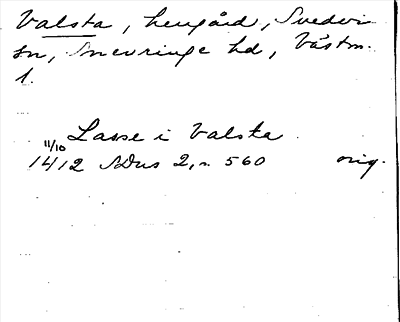 Valsta, hemgård, Svedvi
sn, Snevringe hd, Västm.
l.
Lasse i Valsta
11/10
1412 SDns 2, n. 560 orig.